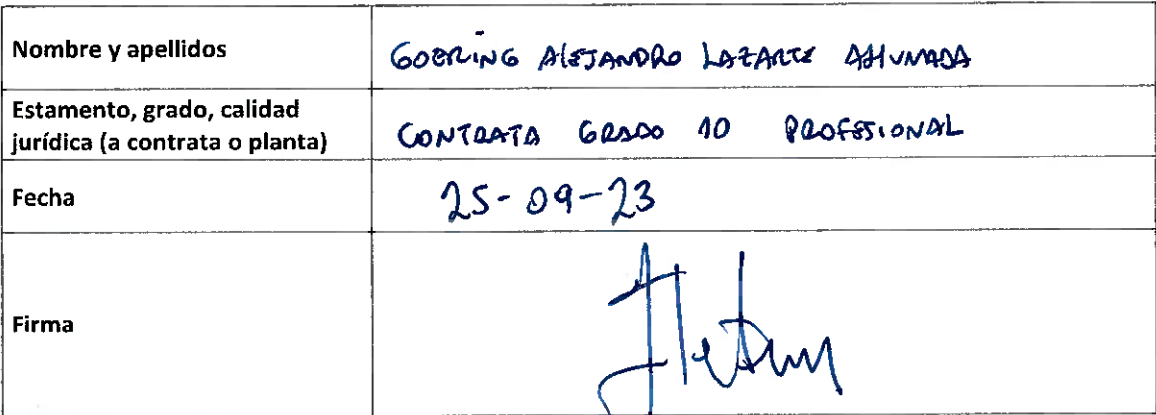 Nombre y apellidos
GOERING ALEJANDRO LAZARTE AHUMADA
Estamento, grado, calidad
jurídica (a contrata o planta)
CONTRATA GRADO 10 PROFESIONAL
Fecha
25-09-23
Firma